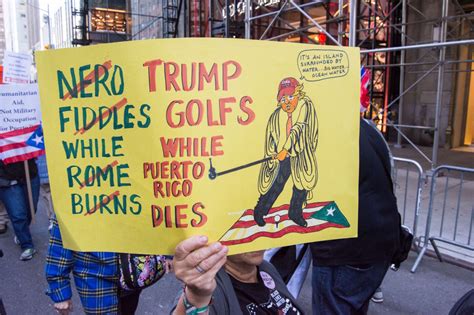 NERO
FIDDLES
WHILE
ROME
BURNS
TRUMP
GOLFS
WHILE
PUERTO
RICO
DIES
"IT'S AN ISLAND
SURROUNDED BY
WATER... BIG WATER
OCEAN WATER"
Humanitarian
Aid,
Not Military
Occupation